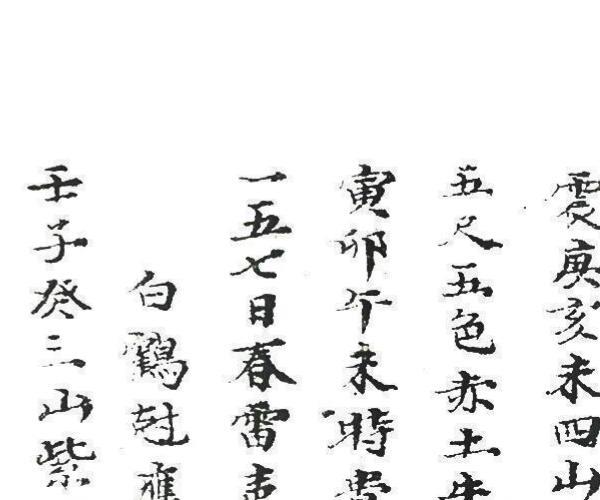 震庚亥未四山
五尺五色赤土
寅卯午未時
一五七日春雷
白鶴
壬子癸三山紫